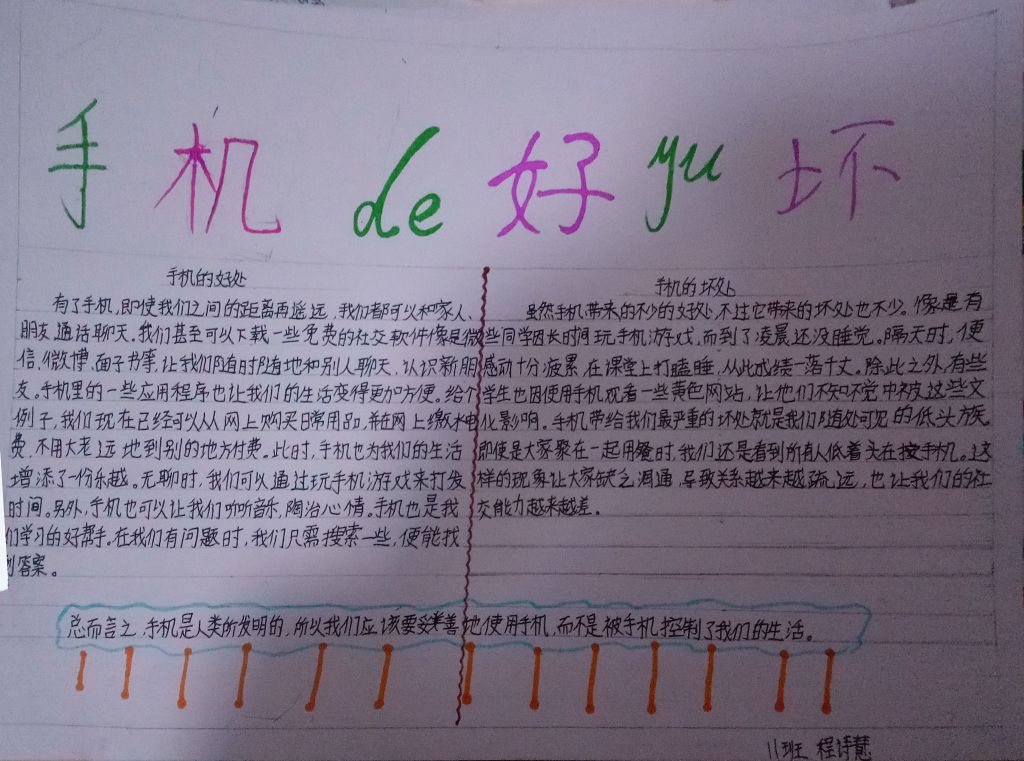 手机de好yu坏
手机的好处
有了手机,即使我们之间的距离再遥远,我们都可以和家人、
朋友通话聊天。我们甚至可以下载一些免费的社交软件像是微
信、微博、面子书等,让我们随时随地和别人聊天、认识新朋
友。手机里的一些应用程序也让我们的生活变得更加方便。给个
例子,我们现在已经可以从从网上购买日常用品,并在网上缴水电
费,不用大老远地到别的地方付费。此时,手机也为我们的生活
增添了一份乐越。无聊时,我们可以通过玩手机游戏来打发
时间。另外,手机也可以让我们听听音乐,陶治心情。手机也是我
们学习的好帮手。在我们有问题时,我们只需搜索一些,便能找
到答案。
手机的坏处
虽然手机带来的不少的好处,不过它带来的坏处也不少。像是有
些同学因长时间玩手机游戏,而到了凌晨还没睡觉。隔天时,便
感动十分疲累,在课堂上打瞌睡,从此成绩一落千丈。除此之外,有些
学生也因使用手机观看一些黄色网站,让他们不知不觉中被这些文
化影响。手机带给我们最严重的坏处就是我们随处可见的低头族。
即使是大家聚在一起用餐时,我们还是看到所有人低着头在按手机。这
样的现象让大家缺乏沟通,导致关系越来越疏远,也让我们的社
交能力越来越差。
总而言之,手机是人类所发明的,所以我们应该要妥善地使用手机,而不是被手机控制了我们的生活。
11班 程诗慧